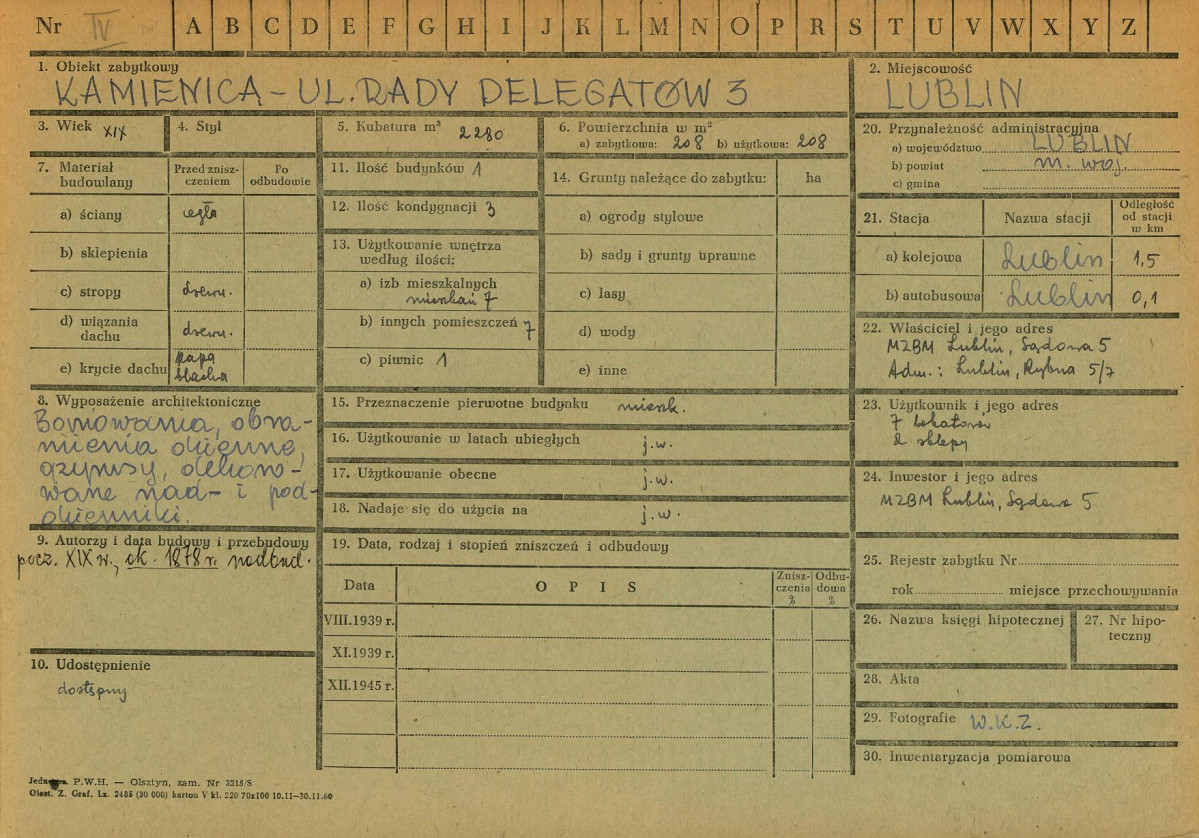 Nr IV A B C D E F G H I J K L M N O P R S T U V W X Y Z
1. Obiekt zabytkowy
KAMIENICA - UL. RADY DELEGATÓW 3
2. Miejscowość
LUBLIN
3. Wiek XIX
4. Styl
5. Kubatura m³ 2280
6. Powierzchnia w m²
a) zabytkowa: 208 b) użytkowa: 208
20. Przynależność administracyjna
a) województwo LUBLIN
b) powiat m. woj.
c) gmina
7. Materiał budowlany
Przed znisz-
czeniem
Po
odbudowie
a) ściany cegła
b) sklepienia
c) stropy drewn.
d) wiązania
dachu drewn.
e) krycie dachu papa
blacha
11. Ilość budynków 1
12. Ilość kondygnacji 3
13. Użytkowanie wnętrza
według ilości:
a) izb mieszkalnych
mieszkań 7
b) innych pomieszczeń 7
c) piwnic 1
14. Grunty należące do zabytku: ha
a) ogrody stylowe
b) sady i grunty uprawne
c) lasy
d) wody
e) inne
21. Stacja Nazwa stacji Odległość
od stacji
w km
a) kolejowa Lublin 1,5
b) autobusowa Lublin 0,1
22. Właściciel i jego adres
MZBM Lublin, Sądowa 5
Adm.: Lublin, Rybna 5/7
8. Wyposażenie architektoniczne
Boniowania, obra-
mienia okienne,
gzymsy, dekoro-
wane nad- i pod-
okienniki.
15. Przeznaczenie pierwotne budynku mieszk.
16. Użytkowanie w latach ubiegłych j.w.
17. Użytkowanie obecne j.w.
18. Nadaje się do użycia na j.w.
23. Użytkownik i jego adres
7 lokatorów
2 sklepy
24. Inwestor i jego adres
MZBM Lublin, Sądowa 5
9. Autorzy i data budowy i przebudowy
pocz. XIX w., ok. 1878 r. nadbud.
19. Data, rodzaj i stopień zniszczeń i odbudowy
Data O P I S Znisz-
czenia
% Odbu-
dowa
%
VIII.1939 r.
XI.1939 r.
XII.1945 r.
25. Rejestr zabytku Nr
rok miejsce przechowywania
26. Nazwa księgi hipotecznej
27. Nr hipo-
teczny
10. Udostępnienie
dostępny
28. Akta
29. Fotografie W.K.Z.
30. Inwentaryzacja pomiarowa
P.W.H. — Olsztyn, zam. Nr 3215/S
Olszt. Z. Graf. Lz. 2485 (30 000) karton V kl. 220 70x100 10.11—30.11.60